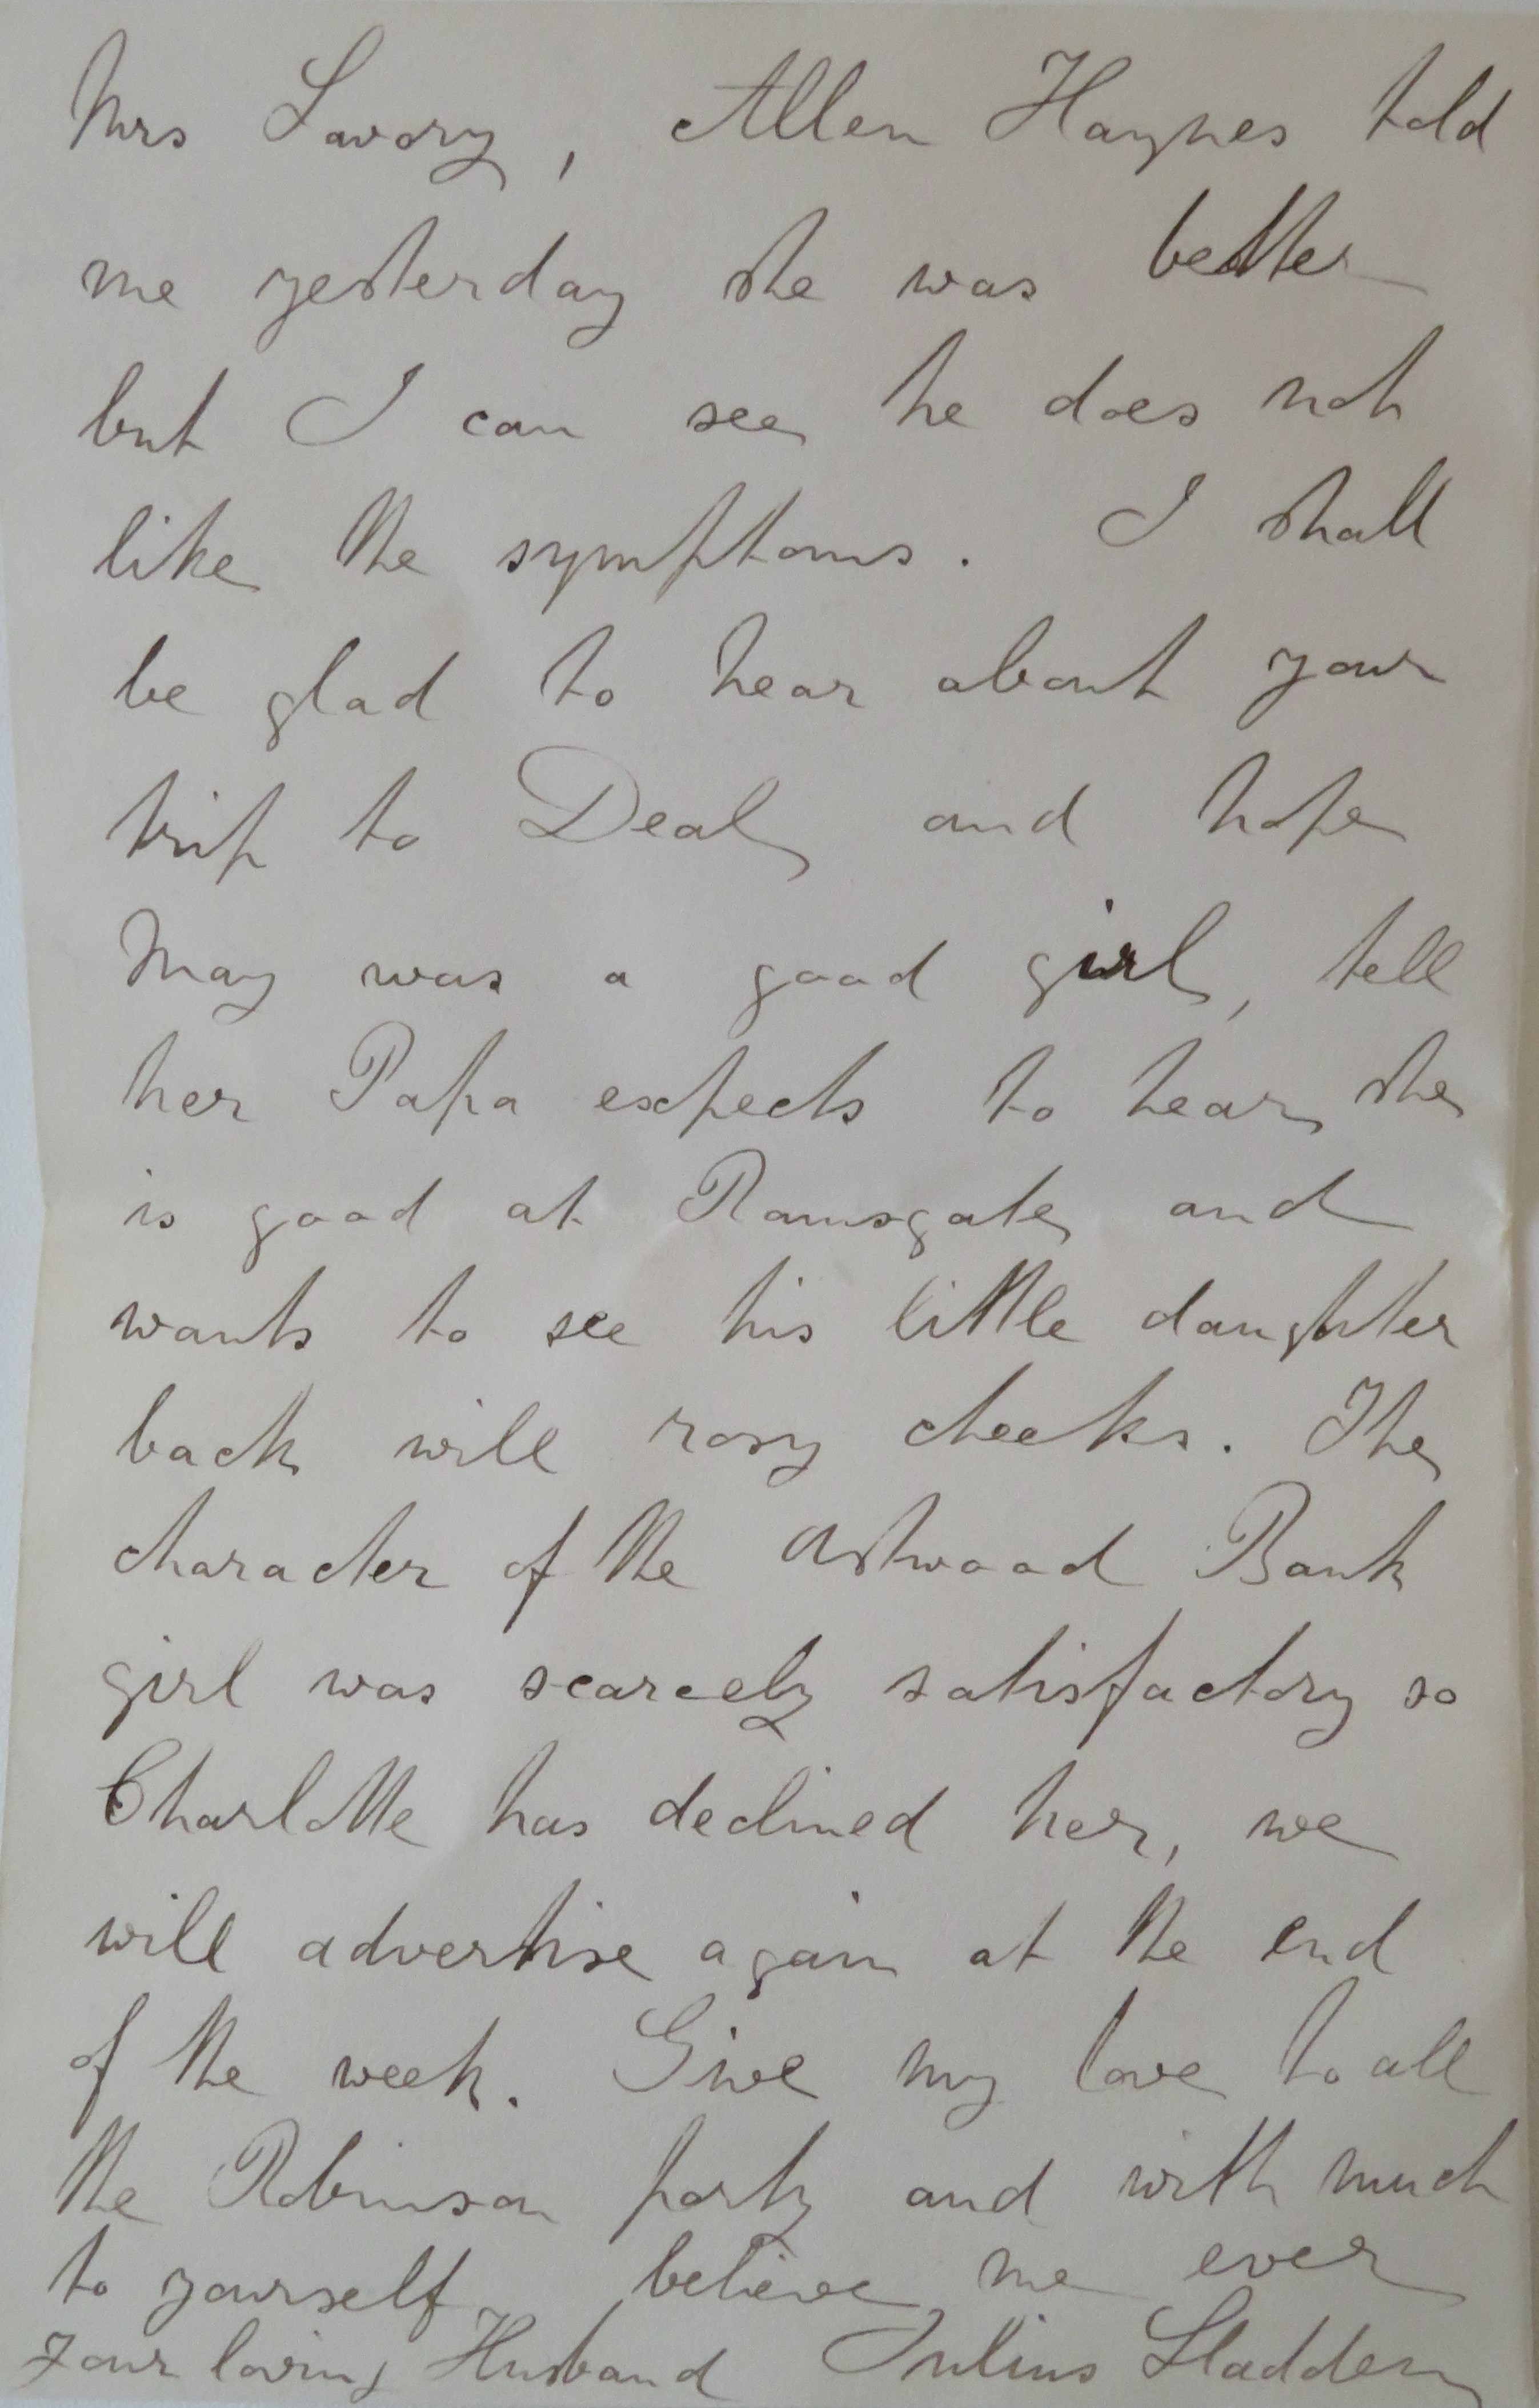 Mrs Savory, Allen Haynes told
me yesterday she was better
but I can see he does not
like the symptoms. I shall
be glad to hear about your
trip to Deal and hope
May was a good girl, tell
her Papa expects to hear she
is good at Ramsgate and
wants to see his little daughter
back will rosy cheeks. The
character of the Astwood Bank
girl was scarcely satisfactory so
Charlotte has declined her, we
will advertise again at the end
of the week. Give my love to all
the Robinson party and with much
to yourself believe me ever
your loving Husband Julius Sladden